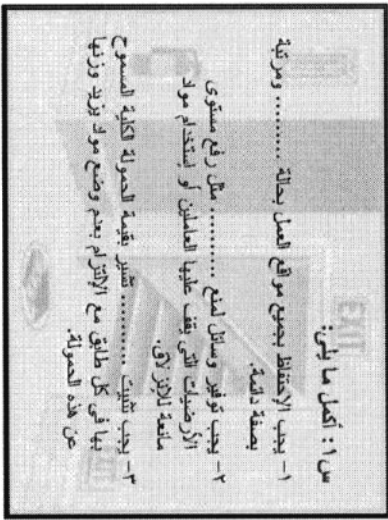 EXIT
س١: أكمل ما يلى:
١- يجب الإحتفاظ بجميع مواقع العمل بحالة ......... ومرتبة
بصفة دائمة.
٢- يجب توفير وسائل لمنع ........... مثل رفع مستوى
الأرضيات التى يقف عليها العاملين أو إستخدام مواد
مانعة للإنزلاق.
٣- يجب تثبيت .......... تشير بقيمة الحمولة الكلية المسموح
بها فى كل طابق مع الإلتزام بعدم وضع مواد يزيد وزنها
عن هذه الحمولة.
EXIT